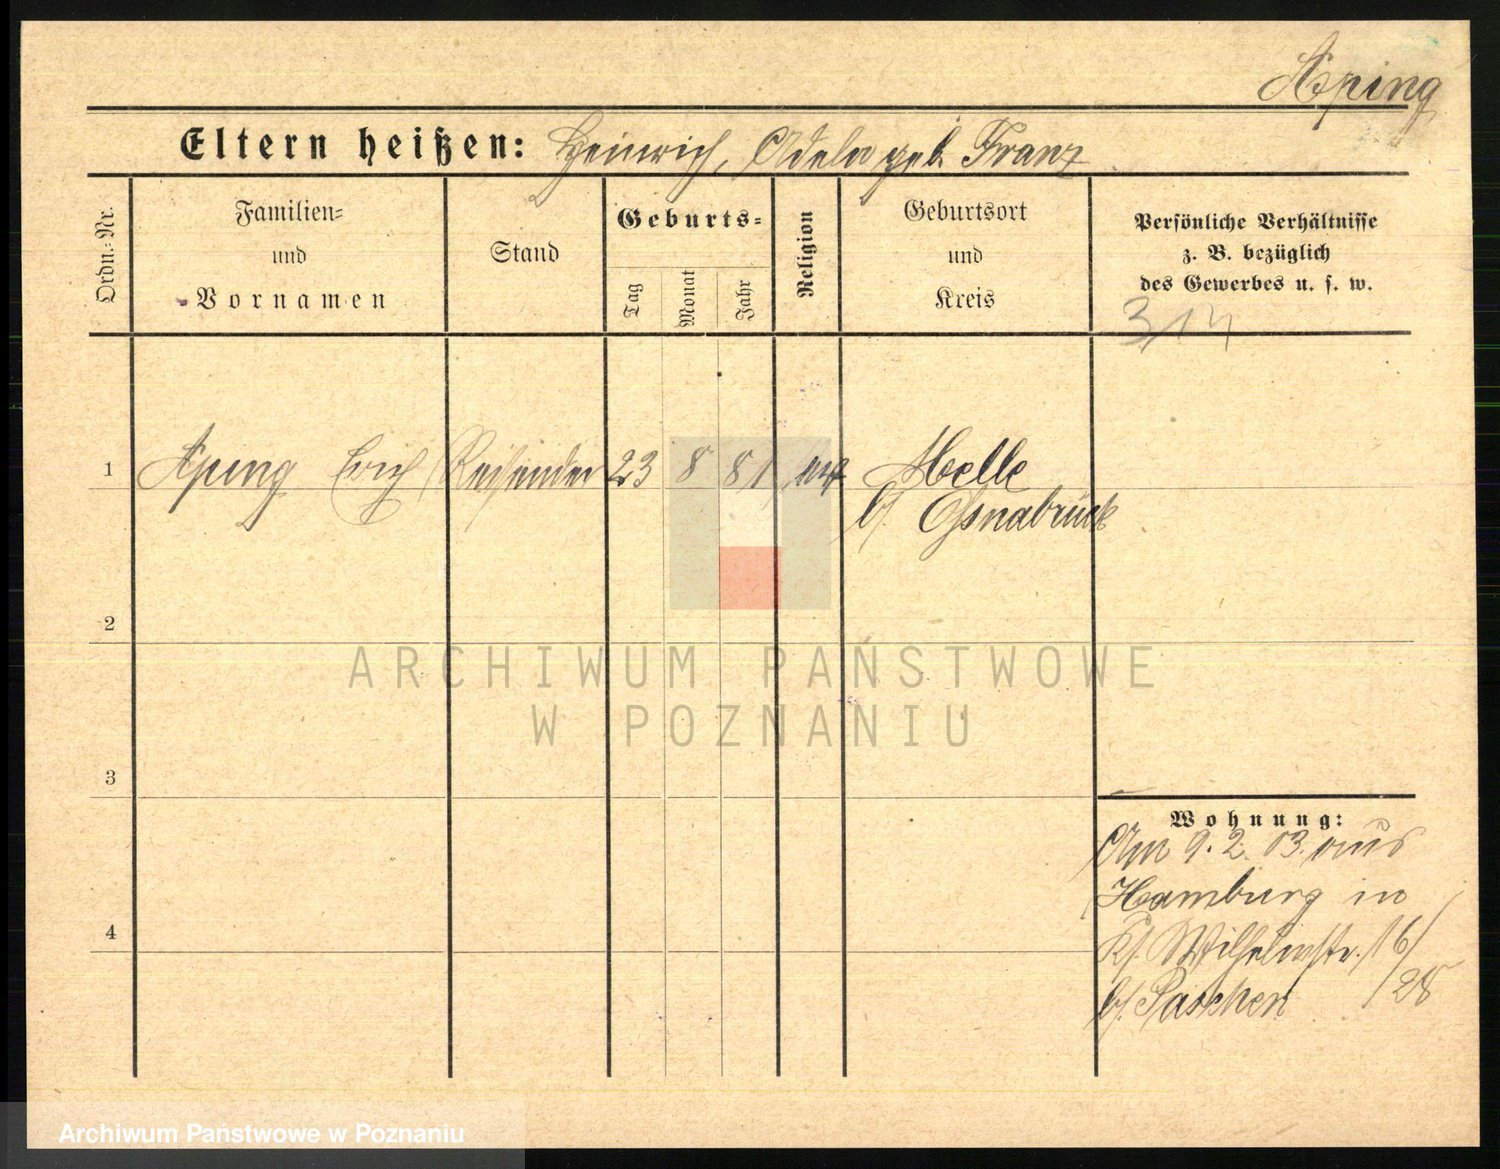 Aping
Eltern heißen: Heinrich, Adele geb. Franz
Ordn.-Nr.
Familien-
und
Vornamen
Stand
Geburts-
Tag
Monat
Jahr
Religion
Geburtsort
und
Kreis
Persönliche Verhältnisse
z. B. bezüglich
des Gewerbes u. s. w.
3/14
1 Aping Erich Reisender 23 8 81 Melle
b/ Osnabrück
2
3
4
Wohnung:
Am 9. 2. 03. aus
Hamburg in
Wilhelmstr. 16/
b/ Paschen /28
ARCHIWUM PAŃSTWOWE
W POZNANIU
Archiwum Państwowe w Poznaniu